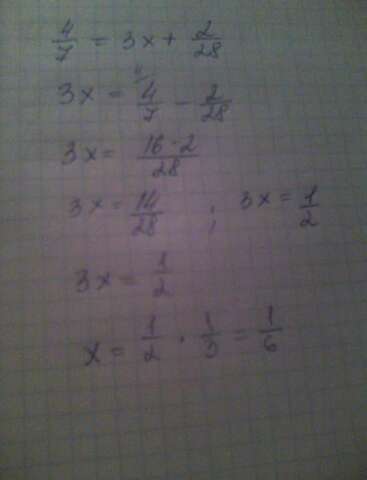 4/7 = 3x + 2/28
3x = 4/7 - 2/28
3x = 16-2/28
3x = 14/28 ; 3x = 1/2
3x = 1/2
x = 1/2 · 1/3 = 1/6